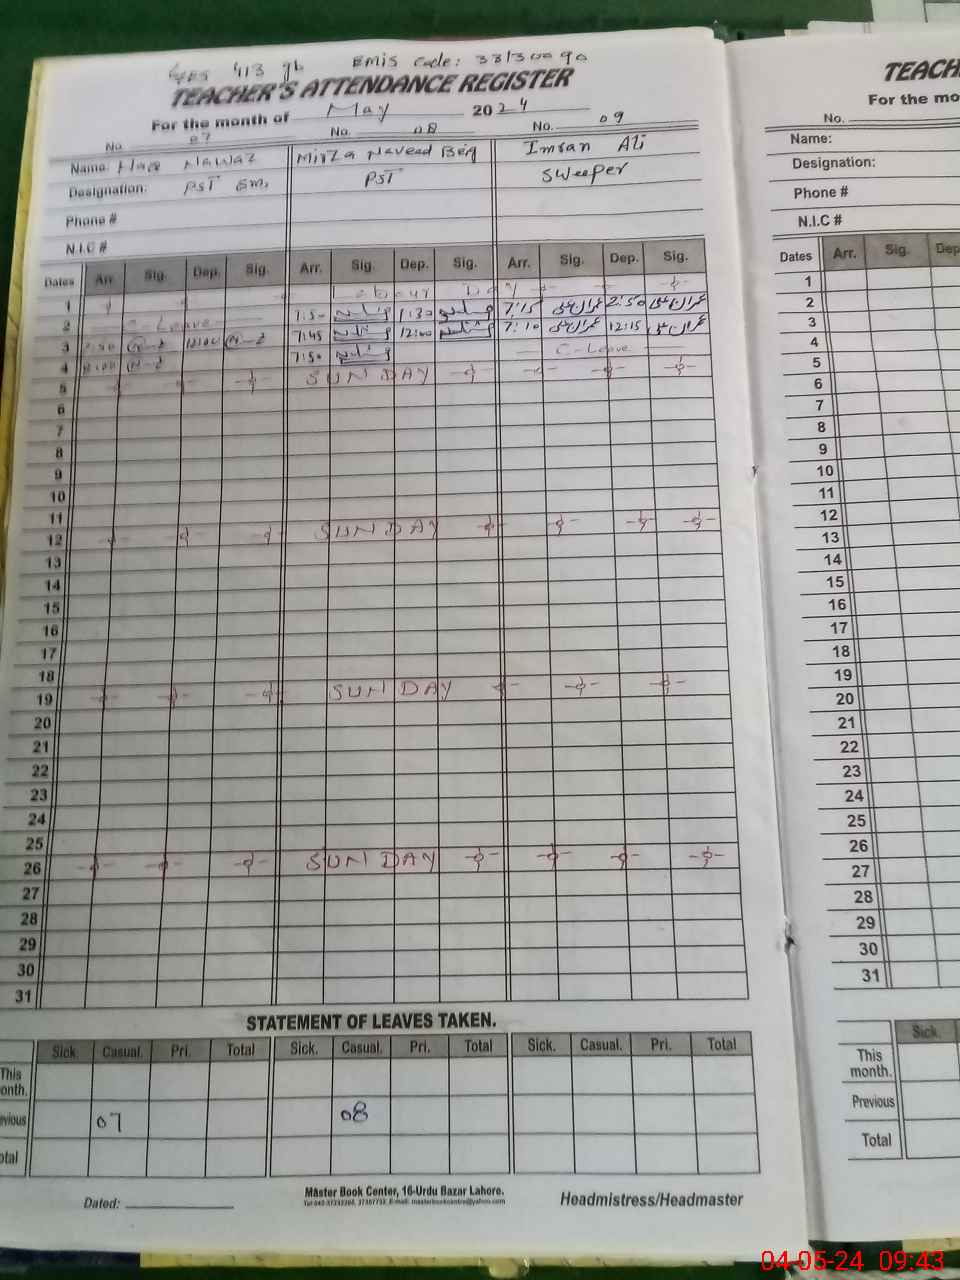 GES 413 gb EMIS Code: 33130090
TEACHER'S ATTENDANCE REGISTER
For the month of May 2024
No. 07 No. 08 No. 09
Name: Nawaz Mirza Naveed Beig Imran Ali
Designation: PST PST Sweeper
Phone #
N.I.C #
Dates Arr. Sig. Dep. Sig. Arr. Sig. Dep. Sig. Arr. Sig. Dep. Sig.
1 Labour Day
2 C-Leave 7:50 1:30 7:15 2:50
3 7:45 12:00 7:10 12:15
4 7:50 C-Leave
5 SUNDAY
6
7
8
9
10
11
12 SUNDAY
13
14
15
16
17
18
19 SUNDAY
20
21
22
23
24
25
26 SUNDAY
27
28
29
30
31
STATEMENT OF LEAVES TAKEN.
Sick. Casual. Pri. Total Sick. Casual. Pri. Total Sick. Casual. Pri. Total
This
onth.
evious 07 08
otal
Dated:
Master Book Center, 16-Urdu Bazar Lahore.
Headmistress/Headmaster
TEACH
For the mo
No.
Name:
Designation:
Phone #
N.I.C #
Dates Arr. Sig. Dep
1
2
3
4
5
6
7
8
9
10
11
12
13
14
15
16
17
18
19
20
21
22
23
24
25
26
27
28
29
30
31
Sick.
This
month.
Previous
Total
04-05-24 09:43